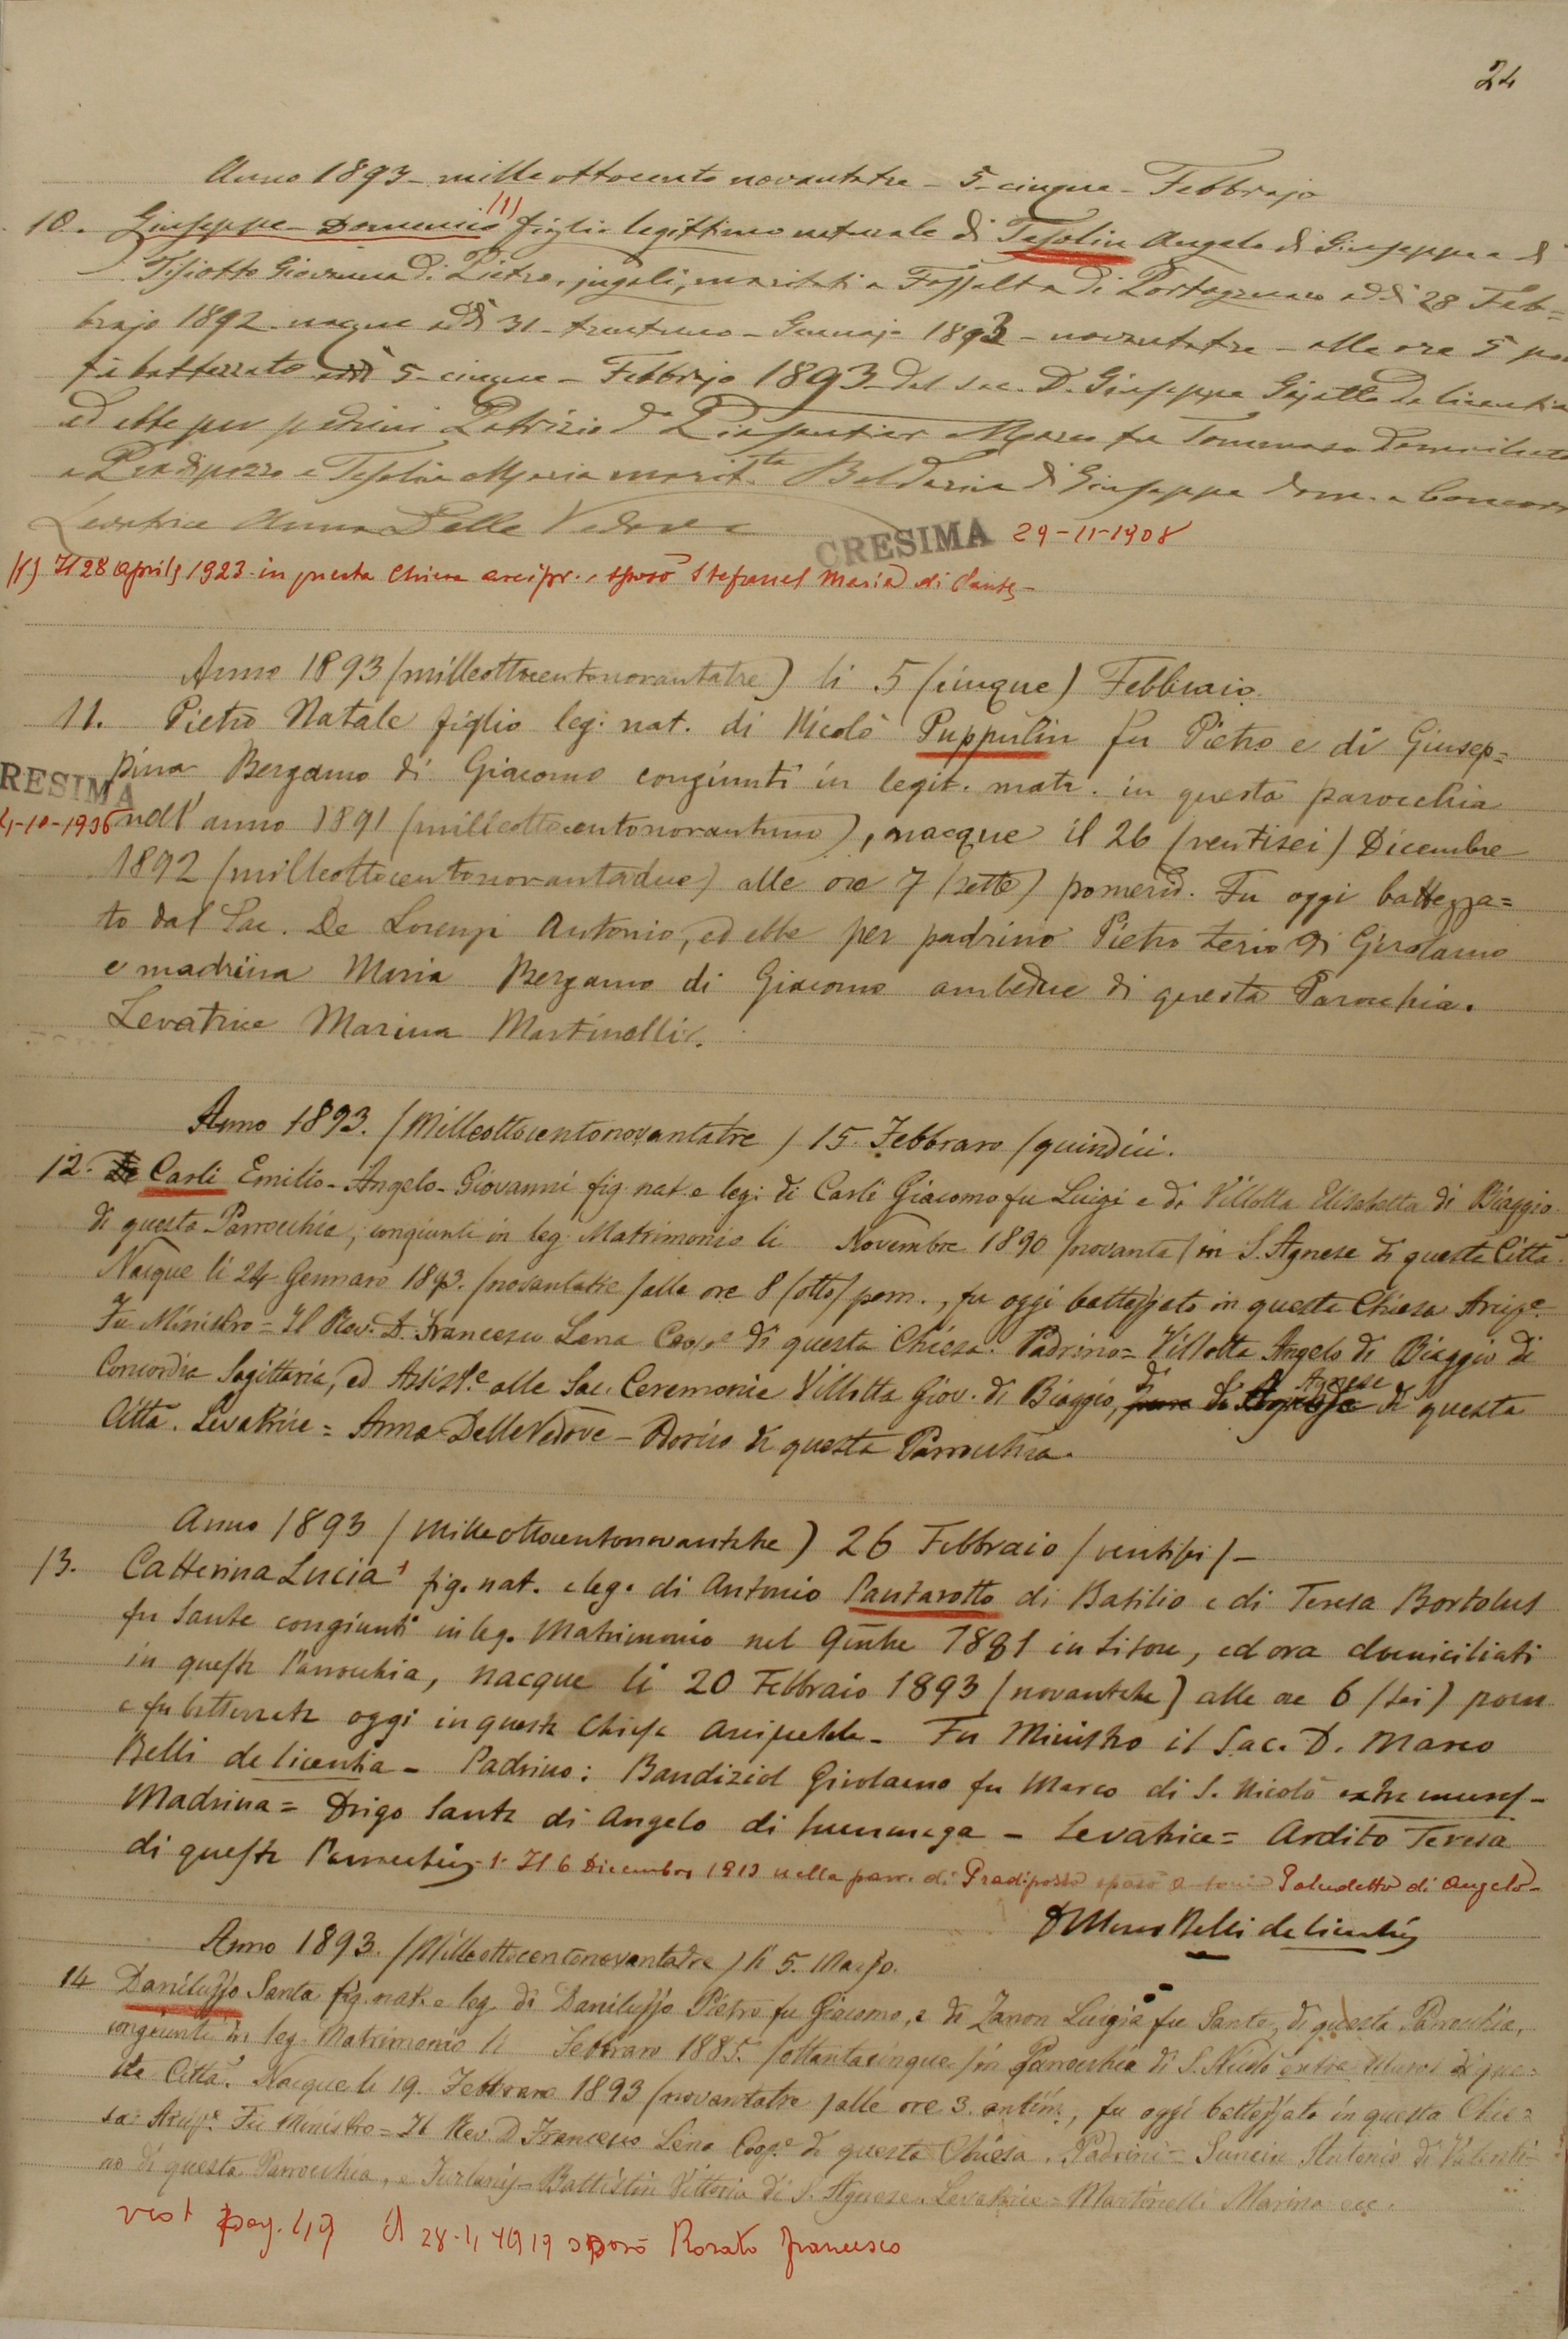 24
Anno 1893 - mille ottocento novantatre - 5 - cinque - Febbrajo
10. Giuseppe - Domenico (1) figlio legittimo naturale di Tesolin Angelo di Giuseppe e di
Tisiotto Giovanna di Pietro, jugali, maritati a Fossalta di Portogruaro addì 28 Feb=
brajo 1892 nacque addì 31 - trentuno - Gennajo 1893 - novantatre - alle ore 5 pom
fù battezzato addì 5 - cinque - Febbrajo 1893 dal Sac. D. Giuseppe de licentia
ed ebbe per padrini Patrizio di Marco fu Tommaso domiciliato
a Pradipozzo e Tesolin Maria marit.ta Boldarin di Giuseppe dom. a Concord
Levatrice Anna Delle Vedove
CRESIMA 29-11-1908
(1) Il 28 Aprile 1923 in questa Chiesa arcipr. sposò Stefanel Maria di Sante -
Anno 1893 (milleottocentonovantatre) li 5 (cinque) Febbraio.
11. Pietro Natale figlio leg. nat. di Nicolò Puppulin fu Pietro e di Giusep=
pina Bergamo di Giacomo congiunti in legit. matr. in questa parocchia
RESIMA
-10-1906
nell' anno 1891 (milleottocentonovantuno), nacque il 26 (ventisei) Dicembre
1892 (milleottocentonovantadue) alle ore 7 (sette) pomerid. Fu oggi battezza=
to dal Sac. De Lorenzi Antonio, ed ebbe per padrino Pietro Terio di Girolamo
e madrina Maria Bergamo di Giacomo ambedue di questa Parocchia.
Levatrice Marina Martinelli.
Anno 1893. (Milleottocentonovantatre) 15. Febbraro (quindici.
12. De Carli Emilio - Angelo - Giovanni fig. nat. e leg: di Carli Giacomo fu Luigi e di Villotta Elisabetta di Biaggio
di questa Parrocchia, congiunti in leg. Matrimonio li Novembre 1890 (novanta) in S. Agnese di questa Città.
Nacque li 24 Gennaro 1893. (novantatre) alle ore 8 (otto) pom., fu oggi battezzato in questa Chiesa Arcip.e
Fu Ministro = Il Rev. D. Francesco Lena Coop.e di questa Chiesa. Padrino = Villotta Angelo di Biaggio di
Concordia Sagittaria, ed Assist.e alle Sac. Ceremonie Villotta Giov. di Biaggio, di S. Agnese di questa
Città. Levatrice = Anna Delle Vedove - Dorigo di questa Parrocchia.
Anno 1893 (Milleottocentonovantatre) 26 Febbraio (ventisei) -
13. Catterina Lucia 1 fig. nat. e leg. di Antonio Pantarotto di Basilio e di Teresa Bortolus
fu Sante congiunti in leg. Matrimonio nel 1881 in Lison, ed ora domiciliati
in questa Parrochia, nacque li 20 Febbraio 1893 (novantatre) alle ore 6 (sei) pom
e fu battezzata oggi in questa Chiesa Arcipretale - Fu Ministro il Sac. D. Marco
Belli de licentia - Padrino: Bandiziol Girolamo fu Marco di S. Nicolò extra muros -
Madrina = Drigo Santa di Angelo di Summaga - Levatrice = Ardito Teresa
di questa Parrochia 1. Il 6 Dicembre 1913 nella parr. di Pradipozzo sposò Antonio Paludetto di Angelo -
D Marco Belli de licentia
Anno 1893. (Milleottocentonovantatre) li 5. Marzo.
14 Daniluzzo Santa fig. nat. e leg. di Daniluzzo Pietro fu Giacomo, e di Zanon Luigia fu Sante, di questa Parrochia,
congiunti in leg. Matrimonio li Febbraro 1885. (ottantacinque) in Parrochia di S. Nicolò extra Muros di que=
sta Città. Nacque li 19. Febbraro 1893 (novantatre) alle ore 3. antim., fu oggi battezzata in questa Chie=
sa Arcip.e Fu Ministro = Il Rev. D. Francesco Lena Coop.e di questa Chiesa. Padrini = Antonio di Valenti=
no di questa Parrocchia, e Furlanis - Battistin Vittoria di S. Agnese. Levatrice = Martinelli Marina ecc.
pag. 49 il 28-4 1919 sposò Rosato Francesco